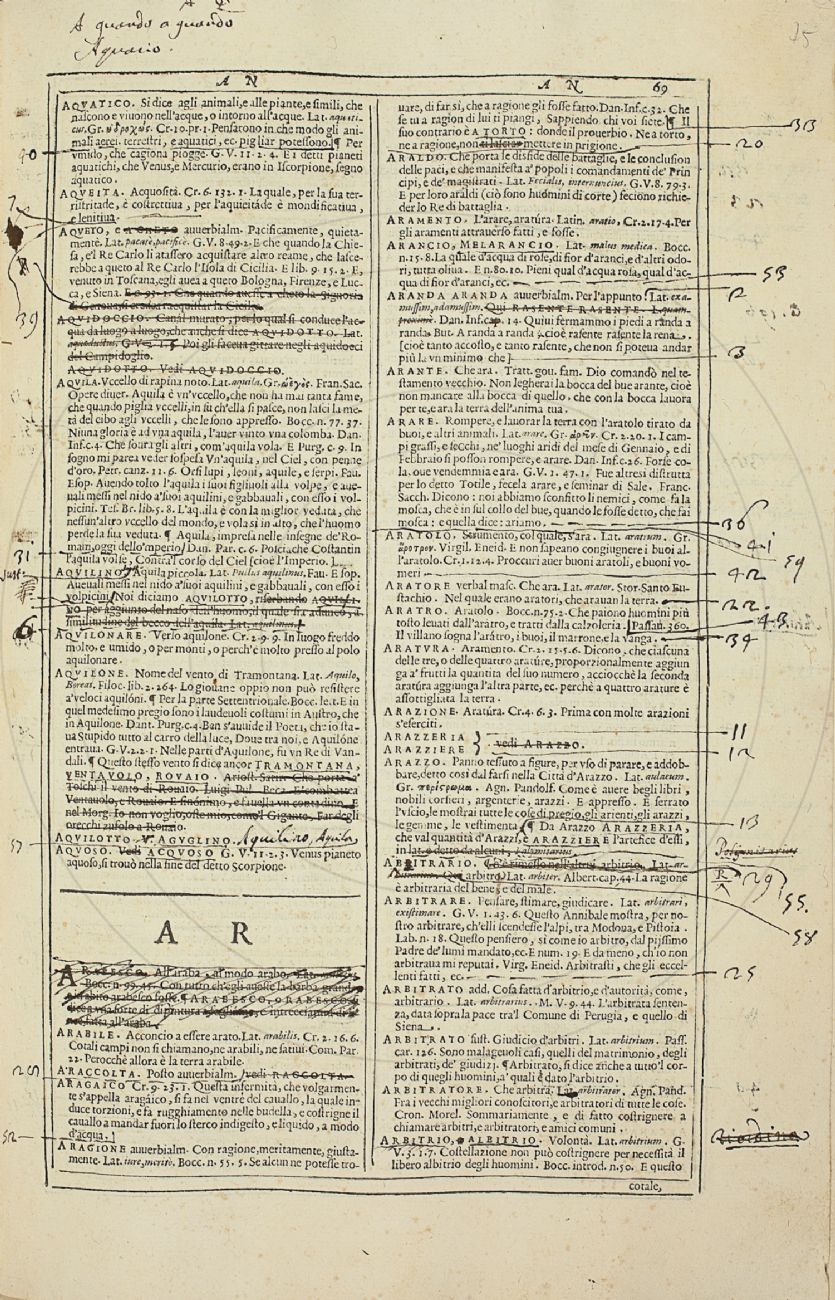 A quando a quando
Aquario.
A N
A N 69
AQVATICO. Si dice agli animali, e alle piante, e simili, che
nascono e viuono nell'acque, o intorno all'acque. Lat. aquati-
cus. Gr. Cr. 10. pr. 1. Pensatono in che modo gli ani-
mali aerei, terrestri, e aquatici, ec. pigliar potessono. ¶ Per
vmido, che cagiona piogge. G. V. 11. 2. 4. E i detti pianeti
aquatichi, che Venus, e Mercurio, erano in Iscorpione, segno
aquatico.
AQVEITA. Acquosità. Cr. 6. 132. 1. La quale, per la sua ter-
ristritade, è costrettiua, per l'aquicitade è mondificatiua,
e lenitiua.
AQVETO, e auuerbialm. Pacificamente, quieta-
mente. Lat. pacatè, pacificè. G. V. 8. 49. 2. E che quando la Chie-
sa, e'l Re Carlo li atassero acquistare altro reame, che lasce-
rebbe a queto al Re Carlo l'Isola di Cicilia. E lib. 9. 15. 2. E,
venuto in Toscana, egli auea a queto Bologna, Firenze, e Luc-
ca, e Siena.
AQVIDOCCIO. Canal murato, per lo qual si conduce l'ac-
qua da luogo a luogo, che anche si dice AQVIDOTTO. Lat.
aquæductus. G. V. 1. Poi gli faceua gittare negli aquidocci
del Campidoglio.
AQVIDOTTO. Vedi AQVIDOCCIO.
AQVILA. Vccello di rapina noto. Lat. aquila. Gr. Fran. Sac.
Opere diuer. Aquila è vn'vccello, che non ha mai tanta fame,
che quando piglia vccelli, in su ch'ella si pasce, non lasci la me-
tà del cibo agli vccelli, che le sono appresso. Bocc. n. 77. 37.
Niuna gloria è ad vna aquila, l'auer vinto vna colomba. Dan.
Inf. c. 4. Che soura gli altri, com'aquila vola. E Purg. c. 9. In
sogno mi parea veder sospesa Vn'aquila, nel Ciel, con penne
d'oro. Petr. canz. 11. 6. Orsi lupi, leoni, aquile, e serpi. Fau.
Esop. Auendo tolto l'aquila i suoi figliuoli alla volpe, e aue-
uali messi nel nido a'suoi aquilini, e gabbauali, con esso i vol-
picini. Tes. Br. lib. 5. 8. L'aquila è con la miglior veduta, che
nessun'altro vccello del mondo, e vola si in alto, che l'huomo
perde la sua veduta. ¶ Aquila, impresa nelle insegne de'Ro-
main, oggi dello'mperio. Dan. Par. c. 6. Posciache Costantin
l'aquila volse, Contra'l corso del Ciel [cioè l'Imperio.]
AQVILINO. Aquila piccola. Lat. Pullus aquilinus. Fau. Esop.
Aueuali messi nel nido a'suoi aquilini, e gabbauali, con esso i
volpicini. Noi diciamo AQVILOTTO, riserbando AQVILI-
NO per aggiunto del naso dell'huomo, il quale sia adunco, a
similitudine del becco dell'aquila. Lat. aquilinus.
AQVILONARE. Verso aquilone. Cr. 2. 9. 9. In luogo freddo
molto, e umido, o per monti, o perch'è molto presso al polo
aquilonare.
AQVILONE. Nome del vento di Tramontana. Lat. Aquilo,
Boreas. Filoc. lib. 2. 264. Lo giouane oppio non può resistere
a'veloci aquilóni. ¶ Per la parte Settentrionale. Bocc. let. E in
quel medesimo pregio sono i laudeuoli costumi in Austro, che
in Aquilone. Dant. Purg. c. 4. Ban s'auuide il Poeta, che io sta-
ua Stupido tutto al carro della luce, Doue tra noi, e Aquilóne
entraua. G. V. 2. 2. 1. Nelle parti d'Aquilone, fu vn Re di Van-
dali. ¶ Questo stesso vento si dice ancor TRAMONTANA,
VENTAVOLO, ROVAIO. Ariost. Satir. Che porta a'
Tolchi il vento di Rouaio. Luigi Pul. Beca. E'combattea
Ventauolo, e Rouaio. E sinónimo, e fauella vn contadino. E
nel Morg. Io non voglio, oste mio, come'l Giganto, Far degli
orecchi zufolo a Rouaio.
AQVILOTTO. V. AGVGLINO. Aquilino, Aquila
AQVOSO. Vedi ACQVOSO G. V. 11. 2. 3. Venus pianeto
aquoso, si trouò nella fine del detto Scorpione.
A R
ARABESCO. All'araba, al modo arabo.
Bocc. n. 99. 45. Con tutto ch'egli auesse la barba grande,
arabesco fosse. ¶ ARABESCO, o RABESCO si
dice a vna sorte di dipintura
fatta all'araba.
ARABILE. Acconcio a essere arato. Lat. arabilis. Cr. 2. 16. 6.
Cotali campi non si chiamano, ne arabili, ne satiui. Com. Par.
22. Perocchè allora è la terra arabile.
A'RACCOLTA. Posto auuerbialm. vedi RACCOLTA.
ARAGAICO Cr. 9. 23. 1. Questa infermità, che volgarmen-
te s'appella aragáico, si fa nel ventre del cauallo, la quale in-
duce torzioni, e fa rugghiamento nelle budella, e costrigne il
cauallo a mandar fuori lo sterco indigesto, e liquido, a modo
d'acqua.
ARAGIONE auuerbialm. Con ragione, meritamente, giusta-
mente. Lat. iure, meritò. Bocc. n. 55. 5. Se alcun ne potesse tro-
uare, di far si, che a ragione gli fosse fatto. Dan. Inf. c. 32. Che
se tu a ragion di lui ti piangi, Sappiendo chi voi siete. ¶ Il
suo contrario è A TORTO: donde il prouerbio. Ne a torto,
ne a ragione, non ti lasciar mettere in prigione.
ARALDO. Che porta le disfide delle battaglie, e le conclusion
delle paci, e che manifesta a' popoli i comandamenti de' Prin
cipi, e de' magistrati. Lat. Fecialis, internuncius. G. V. 8. 79. 3.
E per loro araldi (ciò sono huomini di corte) feciono richie-
der lo Re di battaglia.
ARAMENTO. L'arare, aratura. Latin. aratio, Cr. 2. 17. 4. Per
gli aramenti attrauerso fatti, e fosse.
ARANCIO, MELARANCIO. Lat. malus medica. Bocc.
n. 15. 8. La quale d'acqua di rose, di fior d'aranci, e d'altri odo-
ri, tutta oliua. E n. 80. 10. Pieni qual d'acqua rosa, qual d'ac-
qua di fior d'aranci, ec.
ARANDA ARANDA auuerbialm. Per l'appunto. Lat. exa-
mussim, adamussim. Qui RASENTE RASENTE.
Dan. Inf. cap. 14. Quiui fermammo i piedi a randa a
randa. But. A randa a randa, cioè rasente rasente la rena.
[cioè tanto accosto, e tanto rasente, che non si poteua andar
più la vn minimo che]
ARANTE. Che ara. Tratt. gou. fam. Dio comandò nel te-
stamento vecchio. Non legherai la bocca del bue arante, cioè
non mancare alla bocca di quello, che con la bocca lauora
per te, e ara la terra dell'anima tua.
ARARE. Rompere, e lauorar la terra con l'aratolo tirato da
buoi, e altri animali. Lat. arare. Gr. Cr. 2. 20. 1. I cam-
pi grassi, e secchi, ne' luoghi aridi del mese di Gennaio, e di
Febbraio si posson rompere, e arare. Dan. Inf. c. 26. Forse co-
la, oue vendemmia e ara. G. V. 1. 47. 1. Fue altresi distrutta
per lo detto Totile, fecela arare, e seminar di Sale. Franc.
Sacch. Dicono: noi abbiamo sconfitto li nemici, come fa la
mosca, che è in sul collo del bue, quando le fosse detto, che fai
mosca: e quella dice: ariamo.
ARATOLO, Strumento, col quale, s'ara. Lat. aratium. Gr.
ἄροτρον. Virgil. Eneid. E non sapeano congiugnere i buoi al-
l'aratolo. Cr. 1. 12. 4. Proccuri auer buoni aratoli, e buoni vo-
meri
ARATORE verbal masc. Che ara. Lat. arator. Stor. Santo Eu-
stachio. Nel quale erano aratori, che arauan la terra.
ARATRO. Aratolo. Bocc. n. 75. 2. Che paiono huomini più
tosto leuati dall'aratro, e tratti dalla calzoleria. Passau. 360.
Il villano sogna l'aratro, i buoi, il marrone, e la vanga.
ARATVRA. Aramento. Cr. 2. 15. 5. 6. Dicono, che ciascuna
delle tre, o delle quattro arature, proporzionalmente aggiun
ga a' frutti la quantità del suo numero, acciocchè la seconda
aratura aggiunga l'altra parte, ec. perchè a quattro arature è
assottigliata la terra.
ARAZIONE. Aratúra. Cr. 4. 6. 3. Prima con molte arazioni
s'eserciti.
ARAZZERIA
ARAZZIERE } vedi ARAZZO.
ARAZZO. Panno tessuto a figure, per vso di parare, e addob-
bare, detto così dal farsi nella Città d'Arazzo. Lat. aulæum.
Gr. Agn. Pandolf. Come è auere begli libri,
nobili corsieri, argenterie, arazzi. E appresso. E serrato
l'vscio, le mostrai tutte le cose di pregio, gli arienti, gli arazzi,
le gemme, le vestimenta. ¶ Da Arazzo ARAZZERIA,
che val quantità d'Arazzi, e ARAZZIERE l'artefice d'essi,
in lat.
ARBITRARIO. Ch'è rimesso nell'altrui arbitrio. Lat. ar-
Qui arbitro. Lat. arbiter. Albert. cap. 44. La ragione
è arbitraria del bene, e del male.
ARBITRARE. Pensare, stimare, giudicare. Lat. arbitrari,
existimare. G. V. 1. 43. 6. Questo Annibale mostra, per no-
stro arbitrare, ch'elli scendesse l'alpi, tra Modoua, e Pistoia.
Lab. n. 18. Questo pensiero, si come io arbitro, dal pijssimo
Padre de'lumi mandato, ec. E num. 19. E da meno, ch'io non
arbitraua mi reputai. Virg. Eneid. Arbitrasti, che gli eccel-
lenti fatti, ec.
ARBITRATO add. Cosa fatta d'arbitrio, e d'autorità, come,
arbitrario. Lat. arbitrarius. M. V. 9. 44. L'arbitrata senten-
za, data sopra la pace tra'l Comune di Perugia, e quello di
Siena.
ARBITRATO sust. Giudicio d'arbitri. Lat. arbitrium. Pass.
car. 126. Sono malageuoli casi, quelli del matrimonio, degli
arbitrati, de' giudizj. ¶ Arbitrato, si dice anche a tutto'l cor-
po di quegli huomini, a' quali è dato l'arbitrio.
ARBITRATORE. Che arbitra. Lat. arbitrator. Agn. Pand.
Fra i vecchi migliori conoscitori, e arbitratori di tutte le cose.
Cron. Morel. Sommariamente, e di fatto costrignere a
chiamare arbitri, e arbitratori, e amici comuni.
ARBITRIO, e ALBITRIO. Volontà. Lat. arbitrium. G.
V. 3. 1. 7. Costellazione non può costrignere per necessità il
libero albitrio degli huomini. Bocc. introd. n. 50. E questo
cotale,
40
39
31
6
57
52
33
20
53
2
3
36
41
42
59
22
43
34
11
12
13
R
29
55.
58
25